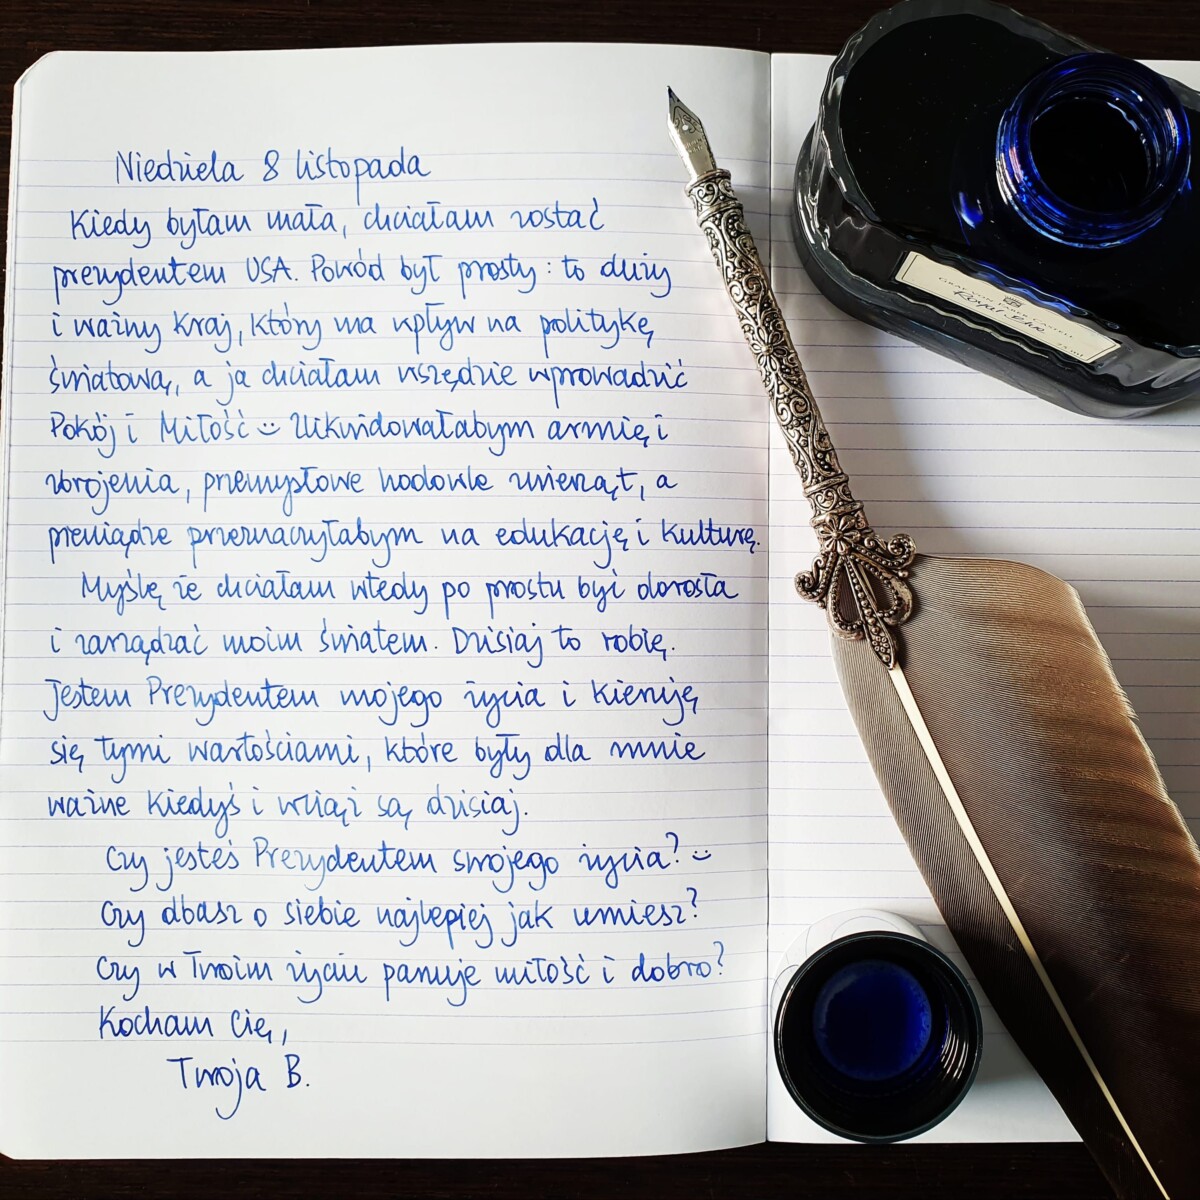 Niedziela 8 listopada
Kiedy byłam mała, chciałam zostać
prezydentem USA. Powód był prosty: to duży
i ważny kraj, który ma wpływ na politykę
światową, a ja chciałam wszędzie wprowadzić
Pokój i Miłość :) Zlikwidowałabym armię i
zbrojenia, przemysłowe hodowle zwierząt, a
pieniądze przeznaczyłabym na edukację i kulturę.
Myślę że chciałam wtedy po prostu być dorosła
i zarządzać moim światem. Dzisiaj to robię.
Jestem Prezydentem mojego życia i kieruję
się tymi wartościami, które były dla mnie
ważne kiedyś i wciąż są dzisiaj.
Czy jesteś Prezydentem swojego życia? :)
Czy dbasz o siebie najlepiej jak umiesz?
Czy w Twoim życiu panuje miłość i dobro?
Kocham Cię,
Twoja B.
GRAF VON FABER-CASTELL
Royal Blue
75 ml